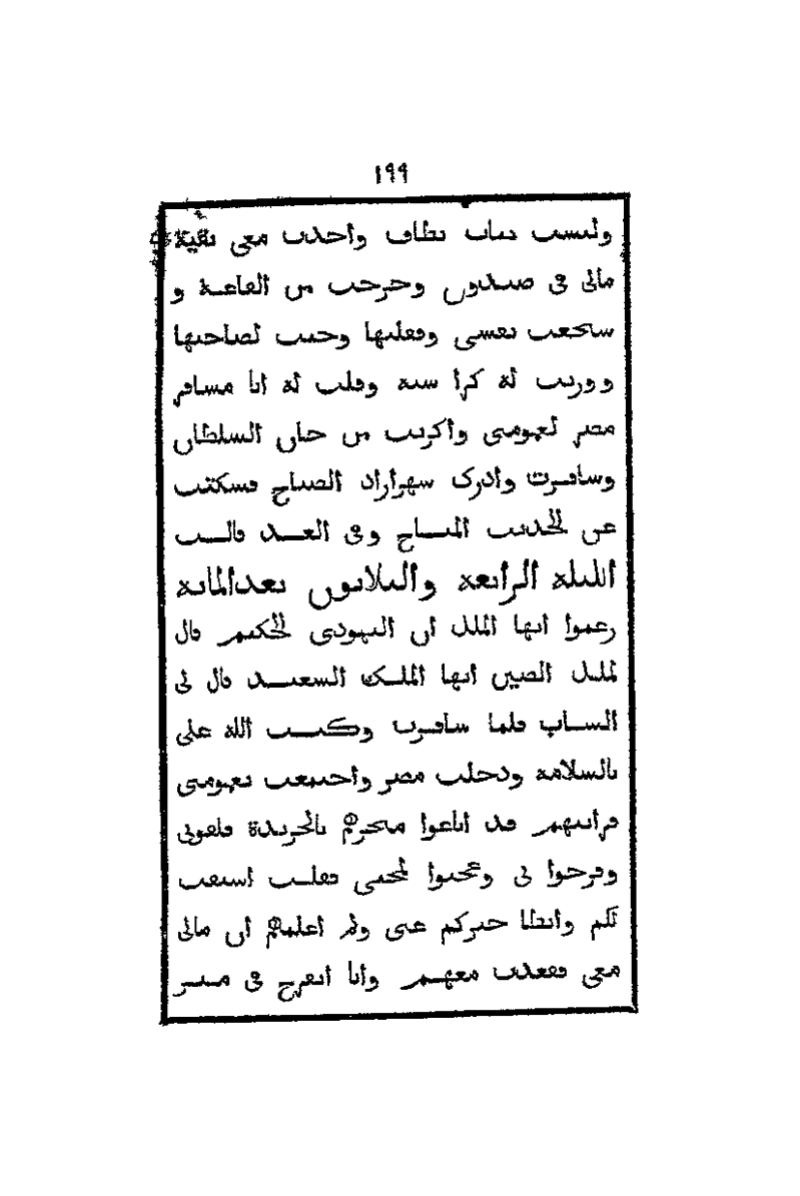 ١٩٩
ولبست ثياب نظاف واخذت معي بقية
مالي في صندوق وخرجت من القاعة و
سجعت نفسي وقفلتها وجيت لصاحبها
ووزنت له كرا سنه وقلت له انا مسافر
مصر لعمومتي واكريت من خان السلطان
وسافرت وادرك شهرازاد الصباح فسكتت
عن الحديث المباح وفي الغد قالت
الليلة الرابعة والثلاثون بعد المائة
زعموا ايها الملك ان اليهودي الحكيم قال
لملك الصين ايها الملك السعيد قال لي
الشاب فلما سافرت وكتب الله علي
بالسلامة ودخلت مصر واجتمعت بعمومتي
فرايتهم قد اباعوا متجرهم بالجريدة فلقوني
وفرحوا لي وعجبوا لمجيي فقلت اشتقت
لكم وابطا خبركم عني ولم اعلمهم ان مالي
معي فقعدت معهم وانا اتفرج في مصر